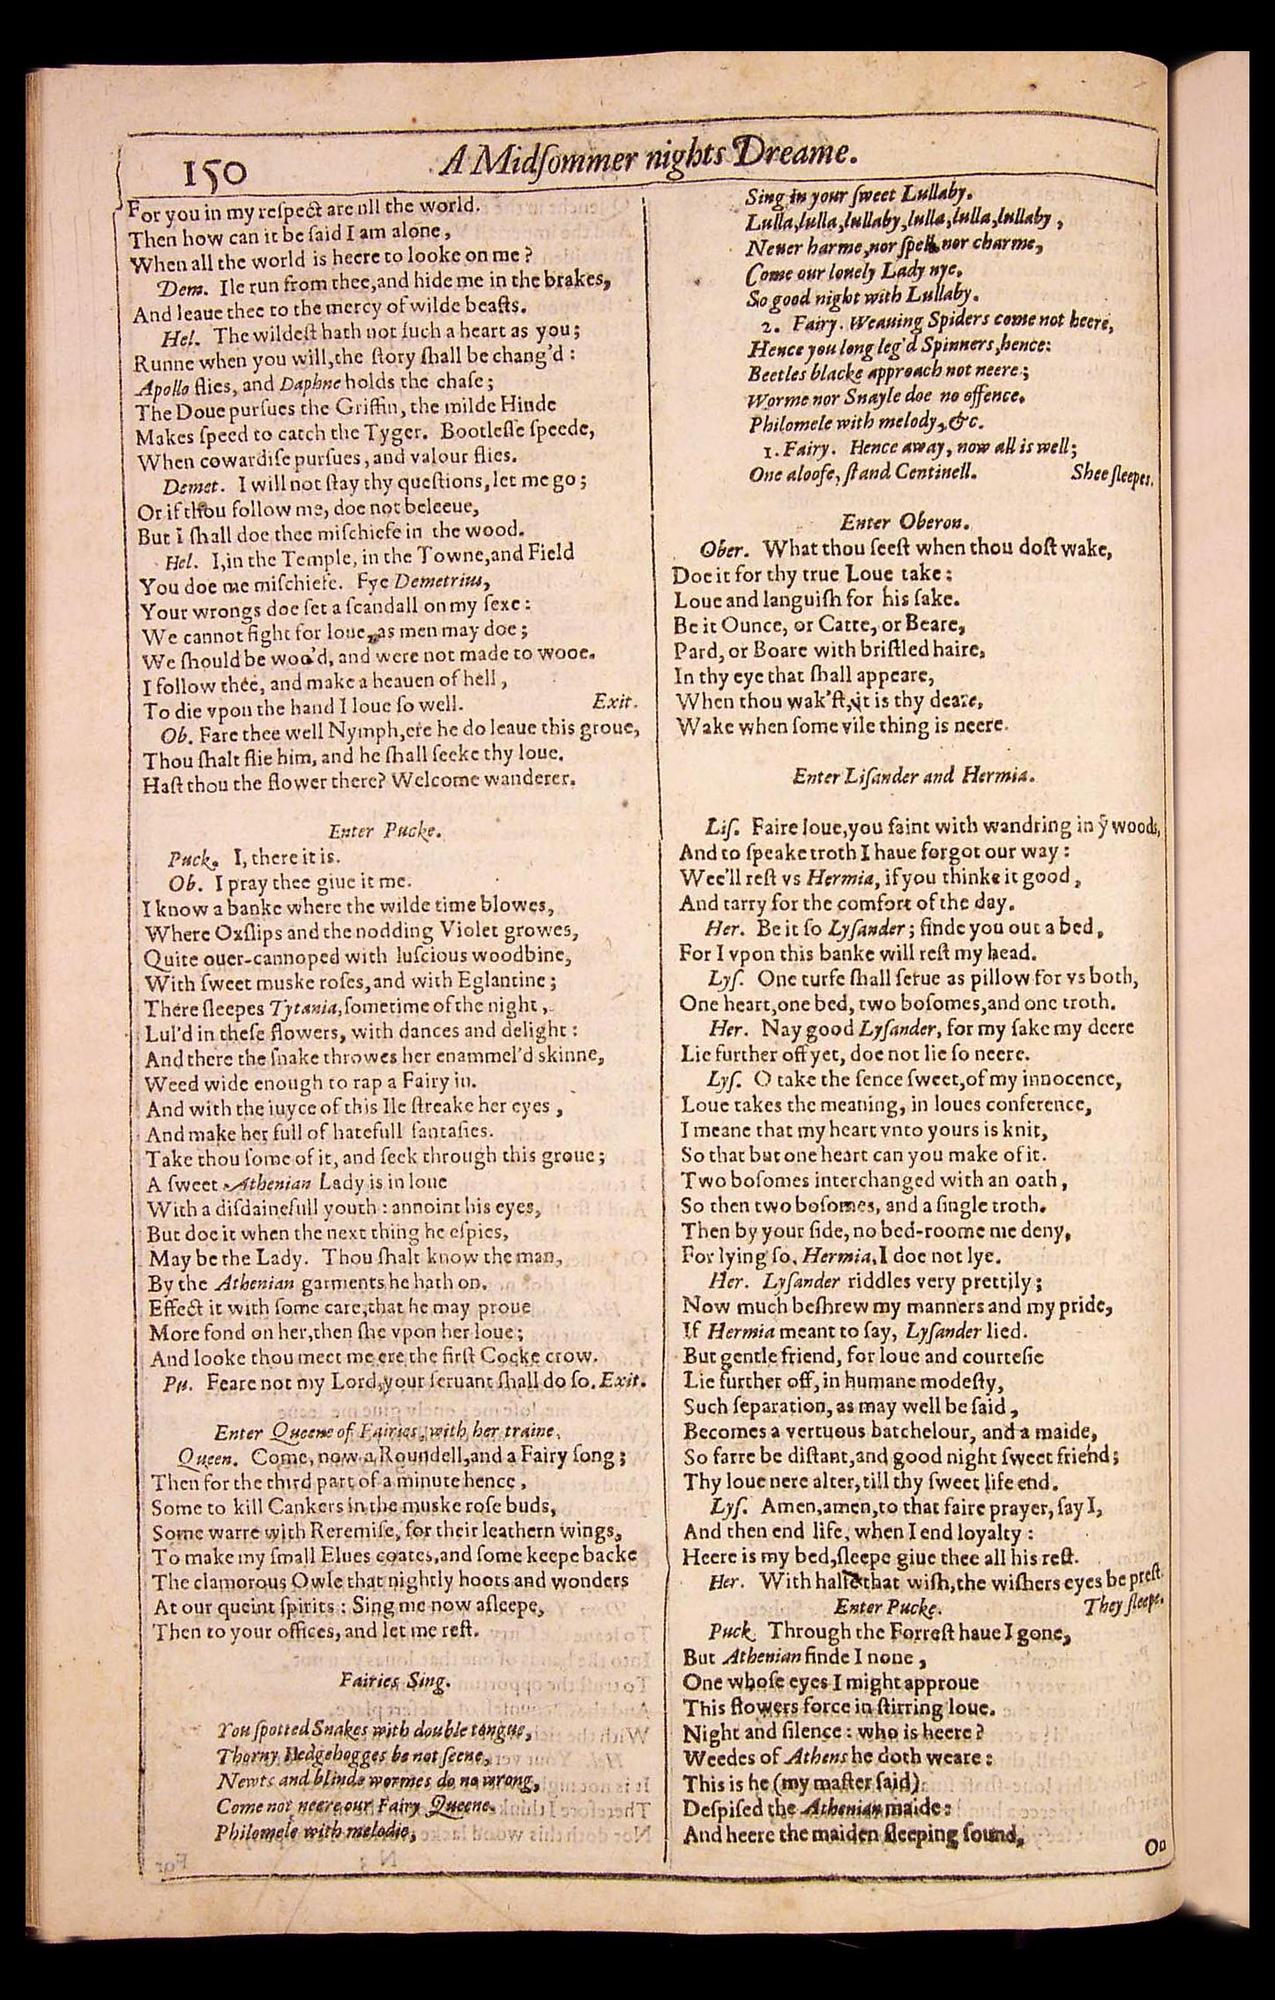 150
A Midſommer nights Dreame.
For you in my reſpect are nll the world.
Then how can it be ſaid I am alone,
When all the world is heere to looke on me?
Dem. Ile run from thee,and hide me in the brakes,
And leaue thee to the mercy of wilde beaſts.
Hel. The wildeſt hath not ſuch a heart as you;
Runne when you will,the ſtory ſhall be chang'd:
Apollo flies, and Daphne holds the chaſe;
The Doue purſues the Griffin, the milde Hinde
Makes ſpeed to catch the Tyger. Bootleſſe ſpeede,
When cowardiſe purſues, and valour flies.
Demet. I will not ſtay thy queſtions, let me go;
Or if thou follow me, doe not beleeue,
But I ſhall doe thee miſchiefe in the wood.
Hel. I,in the Temple, in the Towne,and Field
You doe me miſchiefe. Fye Demetrius,
Your wrongs doe ſet a ſcandall on my ſexe:
We cannot fight for loue, as men may doe;
We ſhould be woo'd, and were not made to wooe.
I follow thee, and make a heauen of hell,
To die vpon the hand I loue ſo well. Exit.
Ob. Fare thee well Nymph,ere he do leaue this groue,
Thou ſhalt flie him, and he ſhall ſeeke thy loue.
Haſt thou the flower there? Welcome wanderer.
Enter Pucke.
Puck. I, there it is.
Ob. I pray thee giue it me.
I know a banke where the wilde time blowes,
Where Oxſlips and the nodding Violet growes,
Quite ouer-cannoped with luſcious woodbine,
With ſweet muske roſes,and with Eglantine;
There ſleepes Tytania,ſometime of the night,
Lul'd in theſe flowers, with dances and delight:
And there the ſnake throwes her enammel'd skinne,
Weed wide enough to rap a Fairy in.
And with the iuyce of this Ile ſtreake her eyes,
And make her full of hatefull fantaſies.
Take thou ſome of it, and ſeek through this groue;
A ſweet Athenian Lady is in loue
With a diſdainefull youth: annoint his eyes,
But doe it when the next thing he eſpies,
May be the Lady. Thou ſhalt know the man,
By the Athenian garments he hath on.
Effect it with ſome care,that he may proue
More fond on her,then ſhe vpon her loue;
And looke thou meet me ere the firſt Cocke crow.
Pu. Feare not my Lord,your ſeruant ſhall do ſo. Exit.
Enter Queene of Fairies, with her traine.
Queen. Come, now a Roundell,and a Fairy ſong;
Then for the third part of a minute hence,
Some to kill Cankers in the muske roſe buds,
Some warre with Reremiſe, for their leathern wings,
To make my ſmall Elues coates,and ſome keepe backe
The clamorous Owle that nightly hoots and wonders
At our queint ſpirits: Sing me now aſleepe,
Then to your offices, and let me reſt.
Fairies Sing.
You ſpotted Snakes with double tongue,
Thorny Hedgehogges be not ſeene,
Newts and blinde wormes do no wrong,
Come not neere our Fairy Queene.
Philomele with melodie,
Sing in your ſweet Lullaby.
Lulla,lulla,lullaby,lulla,lulla,lullaby,
Neuer harme,nor ſpell,nor charme,
Come our louely Lady nye,
So good night with Lullaby.
2. Fairy. Weauing Spiders come not heere,
Hence you long leg'd Spinners,hence:
Beetles blacke approach not neere;
Worme nor Snayle doe no offence.
Philomele with melody,&c.
1. Fairy. Hence away, now all is well;
One aloofe, ſtand Centinell. Shee ſleepes.
Enter Oberon.
Ober. What thou ſeeſt when thou doſt wake,
Doe it for thy true Loue take:
Loue and languiſh for his ſake.
Be it Ounce, or Catte, or Beare,
Pard, or Boare with briſtled haire,
In thy eye that ſhall appeare,
When thou wak'ſt, it is thy deare,
Wake when ſome vile thing is neere.
Enter Liſander and Hermia.
Liſ. Faire loue,you faint with wandring in yͤ woods,
And to ſpeake troth I haue forgot our way:
Wee'll reſt vs Hermia, if you thinke it good,
And tarry for the comfort of the day.
Her. Be it ſo Lyſander; finde you out a bed,
For I vpon this banke will reſt my head.
Lyſ. One turfe ſhall ſerue as pillow for vs both,
One heart,one bed, two boſomes,and one troth.
Her. Nay good Lyſander, for my ſake my deere
Lie further off yet, doe not lie ſo neere.
Lyſ. O take the ſence ſweet,of my innocence,
Loue takes the meaning, in loues conference,
I meane that my heart vnto yours is knit,
So that but one heart can you make of it.
Two boſomes interchanged with an oath,
So then two boſomes, and a ſingle troth.
Then by your ſide, no bed-roome me deny,
For lying ſo, Hermia,I doe not lye.
Her. Lyſander riddles very prettily;
Now much beſhrew my manners and my pride,
If Hermia meant to ſay, Lyſander lied.
But gentle friend, for loue and courteſie
Lie further off, in humane modeſty,
Such ſeparation, as may well be ſaid,
Becomes a vertuous batchelour, and a maide,
So farre be diſtant,and good night ſweet friend;
Thy loue nere alter, till thy ſweet life end.
Lyſ. Amen,amen,to that faire prayer, ſay I,
And then end life, when I end loyalty:
Heere is my bed,ſleepe giue thee all his reſt.
Her. With halfe that wiſh,the wiſhers eyes be preſt.
Enter Pucke. They ſleepe.
Puck. Through the Forreſt haue I gone,
But Athenian finde I none,
One whoſe eyes I might approue
This flowers force in ſtirring loue.
Night and ſilence: who is heere?
Weedes of Athens he doth weare:
This is he (my maſter ſaid)
Deſpiſed the Athenian maide:
And heere the maiden ſleeping ſound,
On